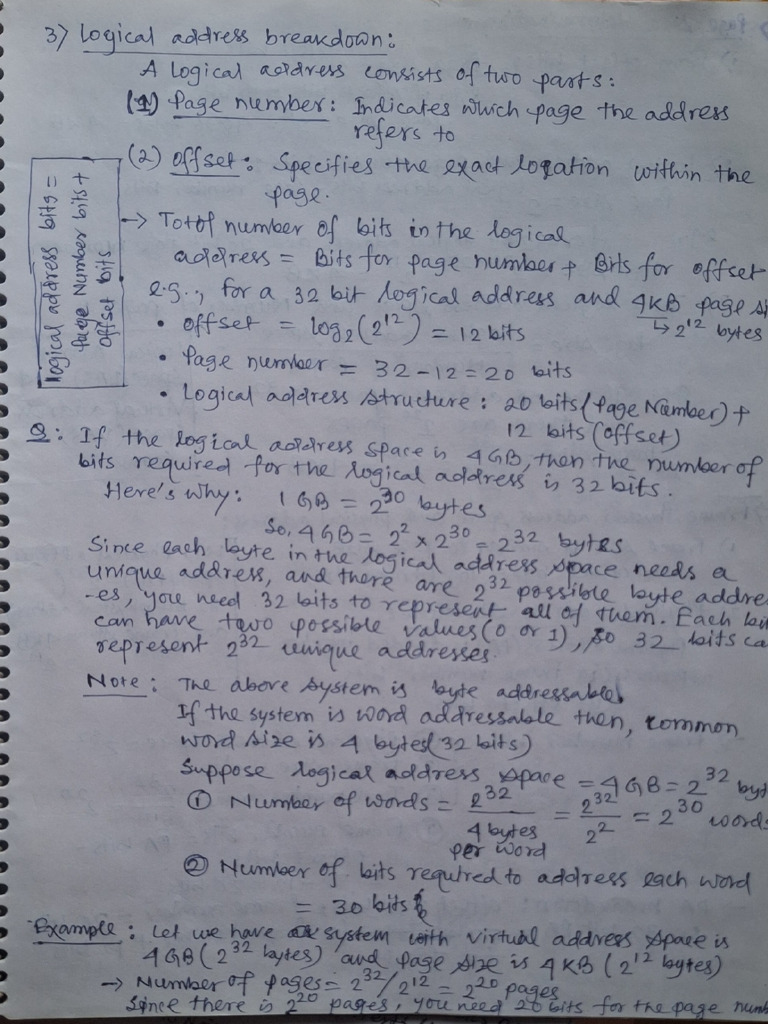 3) Logical address breakdown:
A logical address consists of two parts:
(1) Page number: Indicates which page the address
refers to
(2) Offset: Specifies the exact location within the
page.
logical address bits =
Page Number bits +
offset bits
→ Totol number of bits in the logical
address = Bits for page number + Bits for offset
e.g., for a 32 bit logical address and 4KB page si
↳ 2^12 bytes
• offset = log₂(2^12) = 12 bits
• Page number = 32 - 12 = 20 bits
• Logical address structure: 20 bits (Page Number) +
12 bits (offset)
Q: If the logical address space is 4GB, then the number of
bits required for the logical address is 32 bits.
Here's why: 1 GB = 2^30 bytes
So, 4GB = 2^2 × 2^30 = 2^32 bytes
Since each byte in the logical address space needs a
unique address, and there are 2^32 possible byte addre
-es, you need 32 bits to represent all of them. Each bi
can have two possible values (0 or 1), so 32 bits ca
represent 2^32 unique addresses.
Note: The above system is byte addressable.
If the system is word addressable then, common
word size is 4 bytes (32 bits)
Suppose logical address space = 4GB = 2^32 byt
① Number of words = 2^32 / 4 bytes per word = 2^32 / 2^2 = 2^30 words
② Number of bits required to address each word
= 30 bits
Example: Let we have a system with virtual address space is
4GB (2^32 bytes) and page size is 4KB (2^12 bytes)
→ Number of pages = 2^32/2^12 = 2^20 pages
Since there is 2^20 pages, you need 20 bits for the page numb